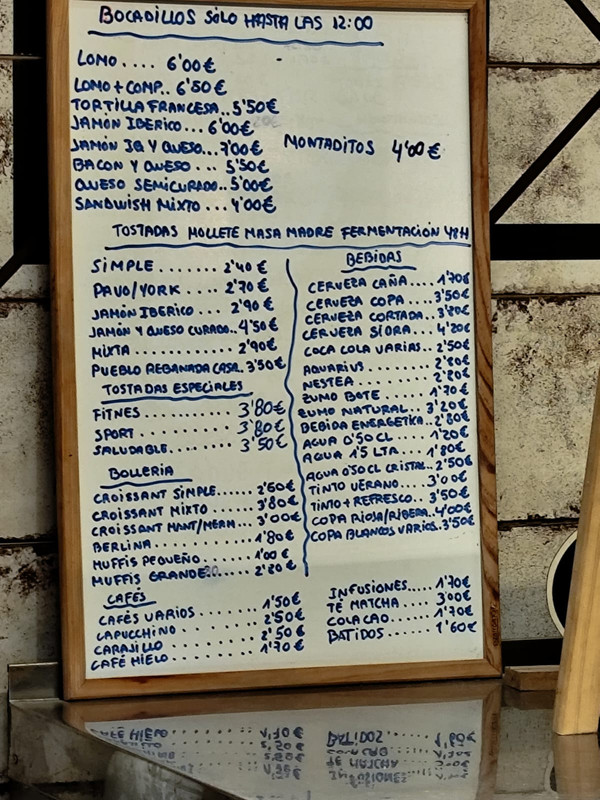 BOCADILLOS SÓLO HASTA LAS 12:00
LOMO.... 6'00€
LOMO+COMP.. 6'50€
TORTILLA FRANCESA..5'50€
JAMÓN IBERICO... 6'00€
JAMÓN IB Y QUESO...7'00€
BACON Y QUESO ... 5'50€
QUESO SEMICURADO..5'00€
SANDWISH MIXTO ... 4'00€
MONTADITOS 4'00€
TOSTADAS MOLLETE MASA MADRE FERMENTACIÓN 48H
SIMPLE ....... 2'40€
PAVO/YORK .... 2'70€
JAMÓN IBERICO ... 2'90€
JAMÓN Y QUESO CURADO..4'50€
MIXTA ....... 2'90€
PUEBLO REBANADA CASA. 3'50€
TOSTADAS ESPECIALES
FITNES ......... 3'80€
SPORT ......... 3'80€
SALUDABLE....... 3'50€
BOLLERIA
CROISSANT SIMPLE...... 2'60€
CROISSANT MIXTO ..... 3'80€
CROISSANT MANT/MERM... 3'00€
BERLINA.......... 1'80€
MUFFIS PEQUEÑO..... 1'00€
MUFFIS GRANDE...... 2'20€
CAFÉS
CAFÉS VARIOS ....... 1'50€
CAPUCCHINO ........ 2'50€
CARAJILLO ......... 2'50€
CAFÉ HIELO ........ 1'70€
BEBIDAS
CERVEZA CAÑA.... 1'70€
CERVEZA COPA .... 3'50€
CERVEZA CORTADA.. 3'80€
CERVEZA SIDRA.... 4'20€
COCA COLA VARIAS.. 2'50€
AQUARIUS....... 2'80€
NESTEA........ 2'80€
ZUMO BOTE..... 1'70€
ZUMO NATURAL.. 3'20€
BEBIDA ENERGETICA.. 2'80€
AGUA 0'50 CL .... 1'20€
AGUA 1'5 LTA.... 1'80€
AGUA 0'50 CL CRISTAL.. 2'50€
TINTO VERANO.... 3'00€
TINTO + REFRESCO.. 3'50€
COPA RIOJA/RIBERA..4'00€
COPA BLANCOS VARIOS.3'50€
INFUSIONES..... 1'70€
TÉ MATCHA .... 3'00€
COLA CAO..... 1'70€
BATIDOS...... 1'60€